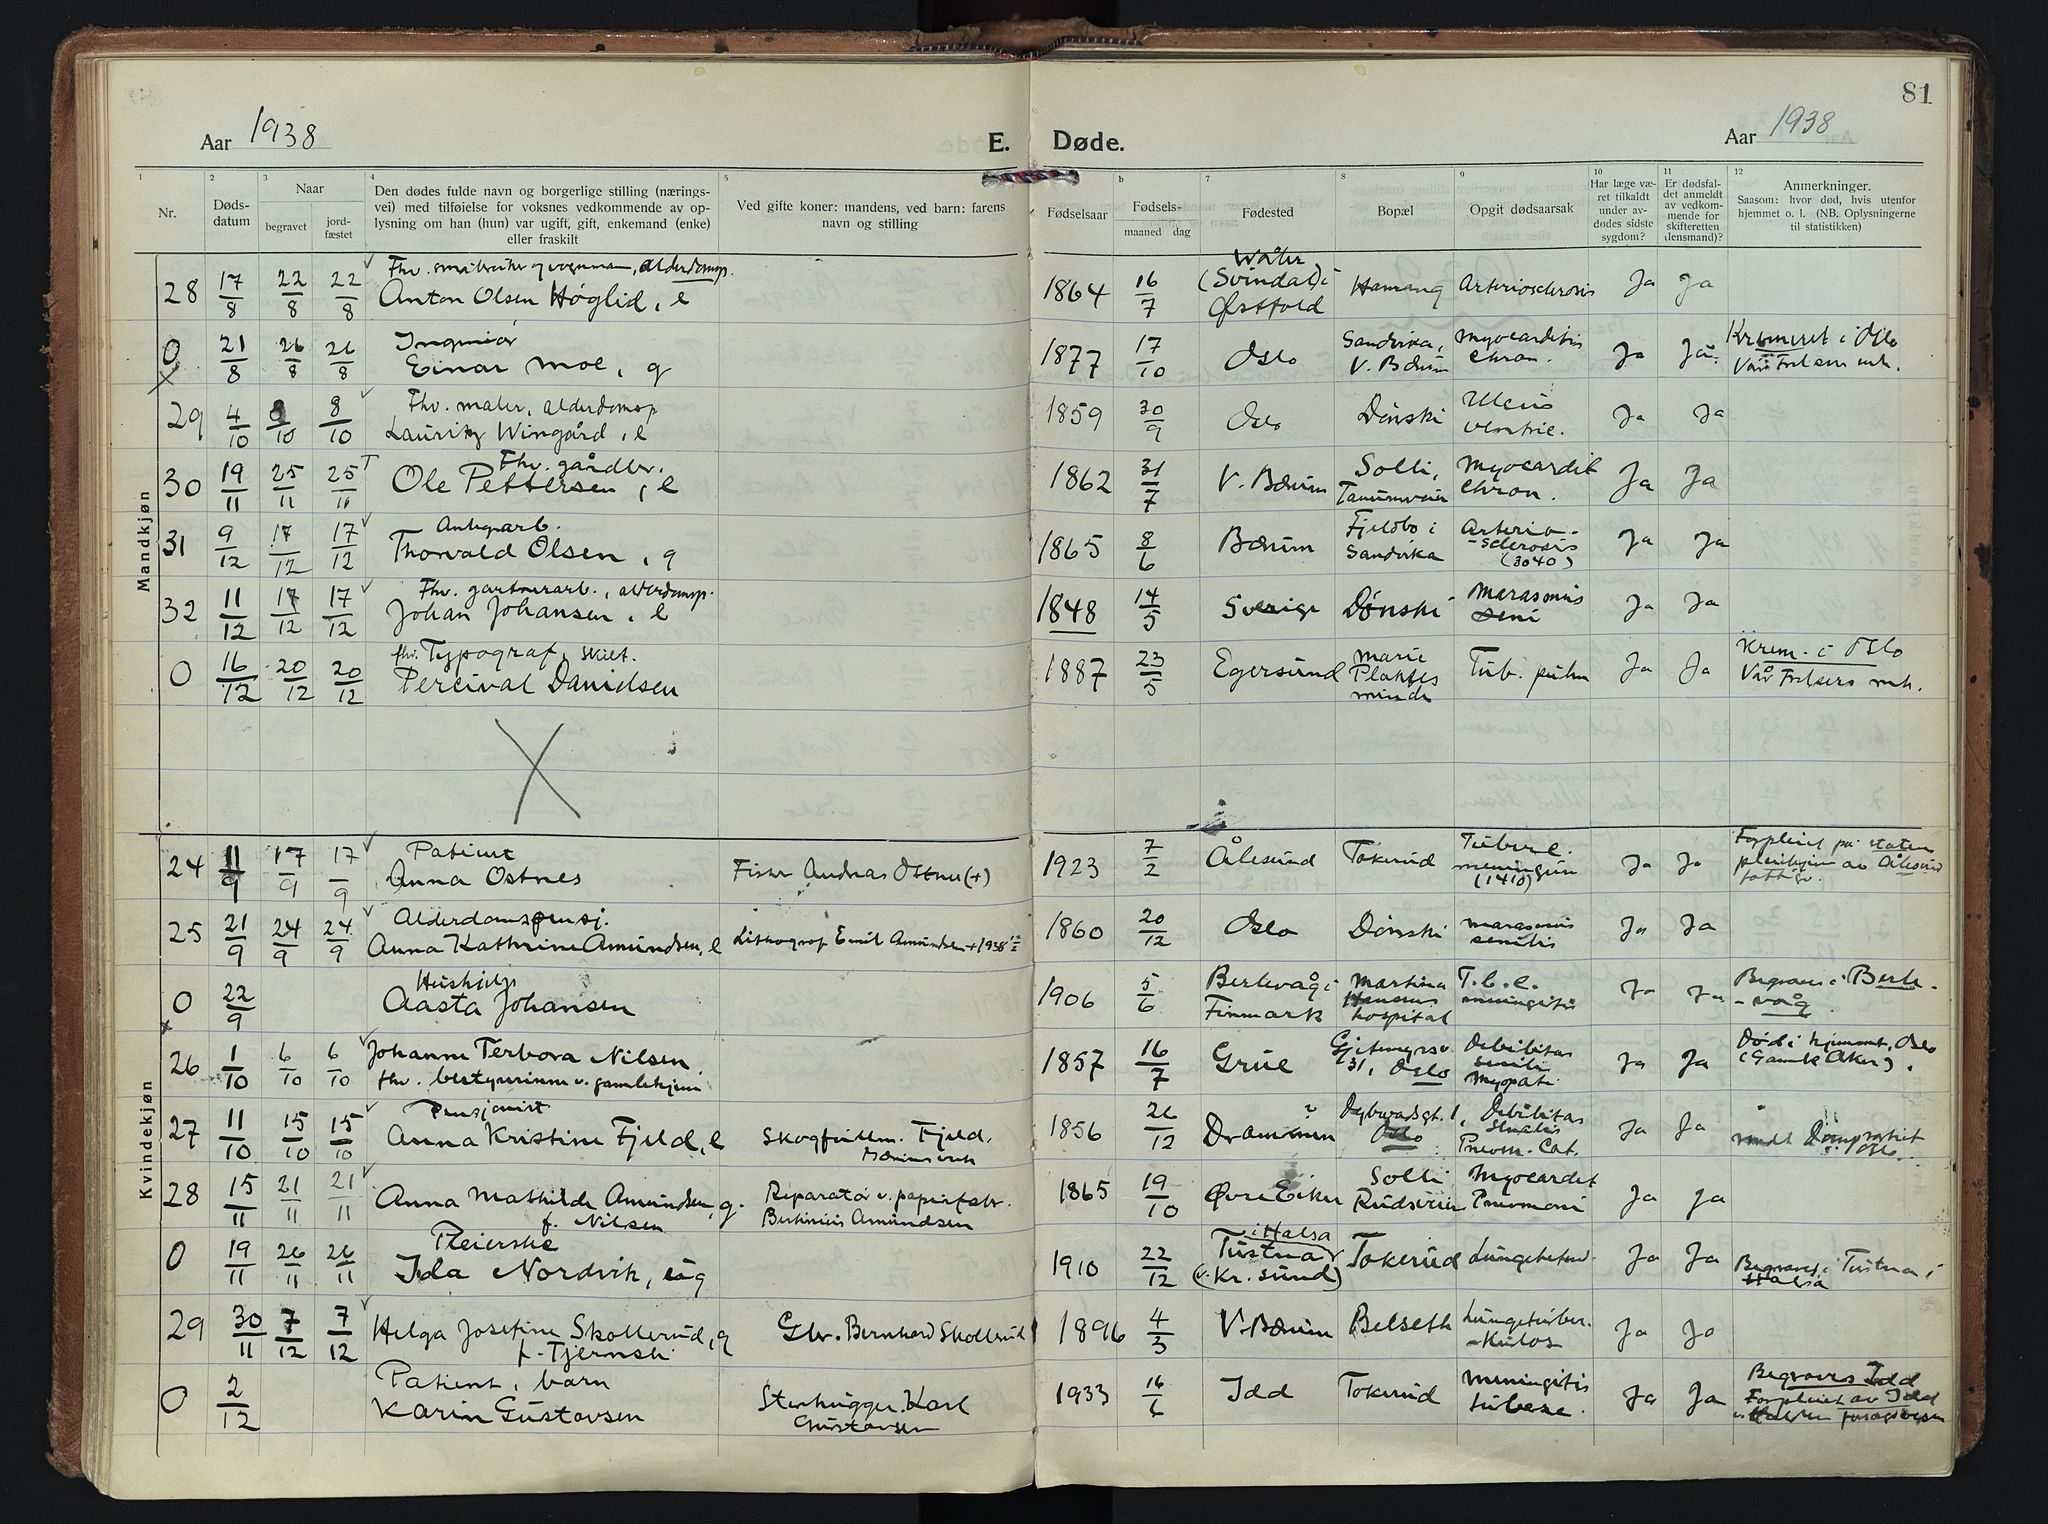 81
Aar 1938 E. Døde. Aar 1938
1 2 3 4 5 b 7 8 9 10 11 12
Nr. Døds-datum Naar begravet jord-fæstet Den dødes fulde navn og borgerlige stilling (nærings-vei) med tilføielse for voksnes vedkommende av op-lysning om han (hun) var ugift, gift, enkemand (enke) eller fraskilt Ved gifte koner: mandens, ved barn: farens navn og stilling Fødselsaar Fødsels-maaned dag Fødested Bopæl Opgit dødsaarsak Har læge væ-ret tilkaldt under av-dødes sidste sygdom? Er dødsfal-det anmeldt av vedkom-mende for skifteretten (lensmand)? Anmerkninger. Saasom: hvor død, hvis utenfor hjemmet o. l. (NB. Oplysningerne til statistikken)
Mandkjøn
28 17/8 22/8 22/8 Fhv. småbruker og vognmann, alderdomsp. Anton Olsen Høglid, e 1864 16/7 Våler (Svindal) i Østfold Hamang Arteriosclerosis Ja Ja
0 21/8 26/8 26/8 Ingeniør Einar Moe, g 1877 17/10 Oslo Sandvika, V. Bærum Myocarditis chron. Ja Ja Kremeret i Oslo Vår Frelsers mk.
29 4/10 8/10 8/10 Fhv. maler, alderdomsp Lauritz Wingård, e 1859 30/9 Oslo Dønski Ulcus ventric. Ja Ja
30 19/11 25/11 25/11 Fhv. gårdbr. Ole Pettersen, e 1862 31/7 V. Bærum Solli, Tanumveien Myocardit chron. Ja Ja
31 9/12 17/12 17/12 Anlegsarb. Thorvald Olsen, g 1865 8/6 Bærum Fjeldbo i Sandvika Arterio-sclerosis (3040) Ja Ja
32 11/12 17/12 17/12 Fhv. gartnerarb., alderdomsp. Johan Johansen, e 1848 14/5 Sverige Dønski Marasmus seni Ja Ja
0 16/12 20/12 20/12 fhv. Typograf, skilt. Percival Danielsen 1887 23/5 Egersund Marie Plahtes minde Tub. pulm Ja Ja Krem. i Oslo Vår Frelsers mk.
Kvindekjøn
24 11/9 17/9 17/9 Patient Anna Ostnes Fisker Andreas Ostnes (+) 1923 7/2 Ålesund Tokerud Tuberc. meningitis (1410) Ja Ja Forpleiet på statens pleiehjem av Ålesund fattigv.
25 21/9 24/9 24/9 Alderdomspensj. Anna Kathrine Amundsen, e Lithograf Emil Amundsen + 1938 1860 20/12 Oslo Dønski marasmus senilis Ja Ja
0 22/9 Hushjelp Aasta Johansen 1906 5/6 Berlevåg i Finmark Martina Hansens hospital T.b.c. meningitis Ja Ja Begraves i Berle-våg
26 1/10 6/10 6/10 Johanne Terbora Nilsen fhv. bestyrerinne v. gamlehjem 1857 16/7 Grue Gjetemyrsv. 31, Oslo Debilitas senilis Myopati Ja Ja Død i hjemmet, Oslo (Gamle Aker).
27 11/10 15/10 15/10 Pensjonist Anna Kristine Fjeld, e Skogfullm. Fjeld, Bærumsverk 1856 26/12 Drammen Dybwadsgt. 1, Oslo Debilitas senilis Pneum. Cat. Ja Ja meldt Domprostiet Oslo.
28 15/11 21/11 21/11 Anna Mathilde Amundsen, g. f. Nilsen Reparatør v. papirfabr. Bertinius Amundsen 1865 19/10 Øvre Eiker Solli Rudsveien Myocardit Pneumoni Ja Ja
0 19/11 26/11 26/11 Pleierske Ida Nordvik, ug 1910 22/12 Tustna i Halsa (v. Kr. sund) Tokerud Lungebetend. Ja Ja Begraves i Tustna i Halsa
29 30/11 7/12 7/12 Helga Josefine Skollerud, g f. Tjernsli Gbr. Bernhard Skollerud 1896 4/3 V. Bærum Belseth Lungetuber-kulos Ja Ja
0 2/12 Patient, barn Karin Gustavsen Stenhugger Karl Gustavsen 1933 16/6 Idd Tokerud Meningitis tuberc. Ja Ja Begraves Idd Forpleiet av Idd forsorgsvesen